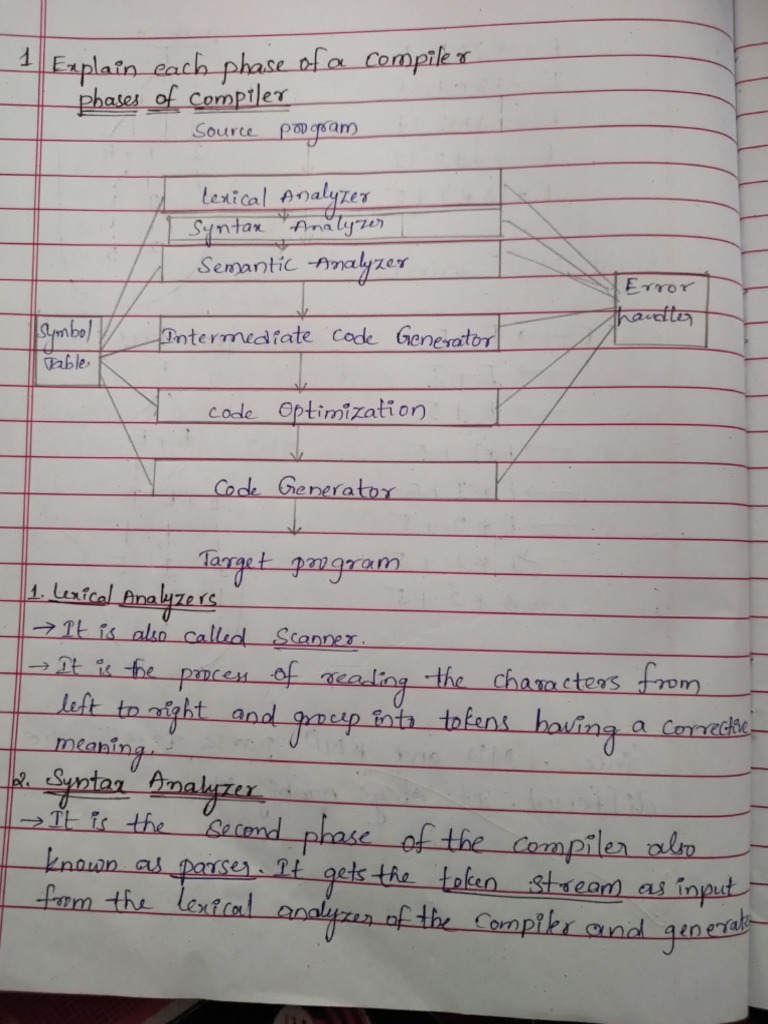 1 Explain each phase of a compiler
phases of compiler
Source program
Lexical Analyzer
Syntax Analyzer
Semantic Analyzer
Error
handler
Symbol
Table
Intermediate code Generator
code Optimization
Code Generator
Target program
1. Lexical Analyzers
→ It is also called Scanner.
→ It is the process of reading the characters from
left to right and group into tokens having a corrective
meaning.
2. Syntax Analyzer
→ It is the second phase of the compiler also
known as parser. It gets the token stream as input
from the lexical analyzer of the compiler and generate